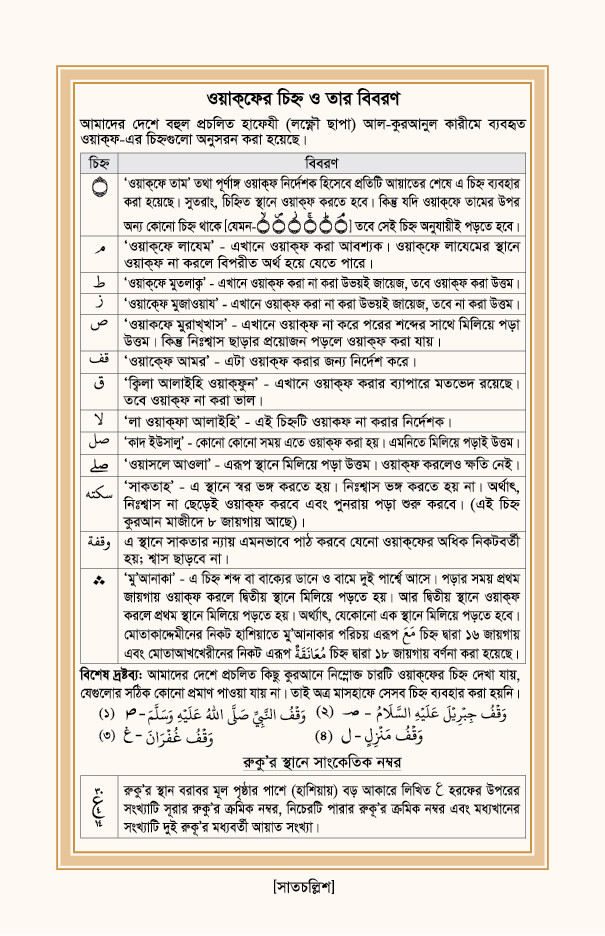 ওয়াক্ফের চিহ্ন ও তার বিবরণ
আমাদের দেশে বহুল প্রচলিত হাফেযী (লক্ষ্ণৌ ছাপা) আল-কুরআনুল কারীমে ব্যবহৃত
ওয়াক্ফ-এর চিহ্নগুলো অনুসরন করা হয়েছে।
চিহ্ন বিবরণ
‘ওয়াক্ফে তাম’ তথা পূর্ণাঙ্গ ওয়াক্ফ নির্দেশক হিসেবে প্রতিটি আয়াতের শেষে এ চিহ্ন ব্যবহার
করা হয়েছে। সুতরাং, চিহ্নিত স্থানে ওয়াক্ফ করতে হবে। কিন্তু যদি ওয়াক্ফে তামের উপর
অন্য কোনো চিহ্ন থাকে [যেমন-] তবে সেই চিহ্ন অনুযায়ীই পড়তে হবে।
م ‘ওয়াক্ফে লাযেম’ - এখানে ওয়াক্ফ করা আবশ্যক। ওয়াক্ফে লাযেমের স্থানে
ওয়াক্ফ না করলে বিপরীত অর্থ হয়ে যেতে পারে।
ط ‘ওয়াক্ফে মুতলাক্ব’ - এখানে ওয়াক্ফ করা না করা উভয়ই জায়েজ, তবে ওয়াক্ফ করা উত্তম।
ز ‘ওয়াক্ফে মুজাওয়ায’ - এখানে ওয়াক্ফ করা না করা উভয়ই জায়েজ, তবে না করা উত্তম।
ص ‘ওয়াকফে মুরাখ্খাস’ - এখানে ওয়াক্ফ না করে পরের শব্দের সাথে মিলিয়ে পড়া
উত্তম। কিন্তু নিঃশ্বাস ছাড়ার প্রয়োজন পড়লে ওয়াক্ফ করা যায়।
قف ‘ওয়াক্ফে আমর’ - এটা ওয়াক্ফ করার জন্য নির্দেশ করে।
ق ‘ক্বিলা আলাইহি ওয়াক্ফুন’ - এখানে ওয়াক্ফ করার ব্যাপারে মতভেদ রয়েছে।
তবে ওয়াক্ফ না করা ভাল।
لا ‘লা ওয়াক্ফা আলাইহি’ - এই চিহ্নটি ওয়াকফ না করার নির্দেশক।
صل ‘কাদ ইউসালু’ - কোনো কোনো সময় এতে ওয়াক্ফ করা হয়। এমনিতে মিলিয়ে পড়াই উত্তম।
صلے ‘ওয়াসলে আওলা’ - এরূপ স্থানে মিলিয়ে পড়া উত্তম। ওয়াক্ফ করলেও ক্ষতি নেই।
سكته ‘সাকতাহ’ - এ স্থানে স্বর ভঙ্গ করতে হয়। নিঃশ্বাস ভঙ্গ করতে হয় না। অর্থাৎ,
নিঃশ্বাস না ছেড়েই ওয়াক্ফ করবে এবং পুনরায় পড়া শুরু করবে। (এই চিহ্ন
কুরআন মাজীদে ৮ জায়গায় আছে)।
وقفة এ স্থানে সাকতার ন্যায় এমনভাবে পাঠ করবে যেনো ওয়াক্ফের অধিক নিকটবর্তী
হয়; শ্বাস ছাড়বে না।
∴ ‘মু‘আনাকা’ - এ চিহ্ন শব্দ বা বাক্যের ডানে ও বামে দুই পার্শ্বে আসে। পড়ার সময় প্রথম
জায়গায় ওয়াক্ফ করলে দ্বিতীয় স্থানে মিলিয়ে পড়তে হয়। আর দ্বিতীয় স্থানে ওয়াক্ফ
করলে প্রথম স্থানে মিলিয়ে পড়তে হয়। অর্থ্যাৎ, যেকোনো এক স্থানে মিলিয়ে পড়তে হবে।
মোতাকাদ্দেমীনের নিকট হাশিয়াতে মু‘আনাকার পরিচয় এরূপ مَعَ চিহ্ন দ্বারা ১৬ জায়গায়
এবং মোতাআখখেরীনের নিকট এরূপ مُعَانَقَةٌ চিহ্ন দ্বারা ১৮ জায়গায় বর্ণনা করা হয়েছে।
বিশেষ দ্রষ্টব্য: আমাদের দেশে প্রচলিত কিছু কুরআনে নিম্নোক্ত চারটি ওয়াক্ফের চিহ্ন দেখা যায়,
যেগুলোর সঠিক কোনো প্রমাণ পাওয়া যায় না। তাই অত্র মাসহাফে সেসব চিহ্ন ব্যবহার করা হয়নি।
(১) وَقْفُ النَّبِيِّ صَلَّى اللهُ عَلَيْهِ وَسَلَّمَ- (২) وَقْفُ جِبْرِيْلَ عَلَيْهِ السَّلَامُ -
(৩) وَقْفُ غُفْرَانَ - غ (৪) وَقْفُ مَنْزِلٍ - ل
রুকু’র স্থানে সাংকেতিক নম্বর
ع রুকু’র স্থান বরাবর মূল পৃষ্ঠার পাশে (হাশিয়ায়) বড় আকারে লিখিত ع হরফের উপরের
সংখ্যাটি সূরার রুকু’র ক্রমিক নম্বর, নিচেরটি পারার রুকূ’র ক্রমিক নম্বর এবং মধ্যখানের
সংখ্যাটি দুই রুকূ’র মধ্যবর্তী আয়াত সংখ্যা।
[সাতচল্লিশ]